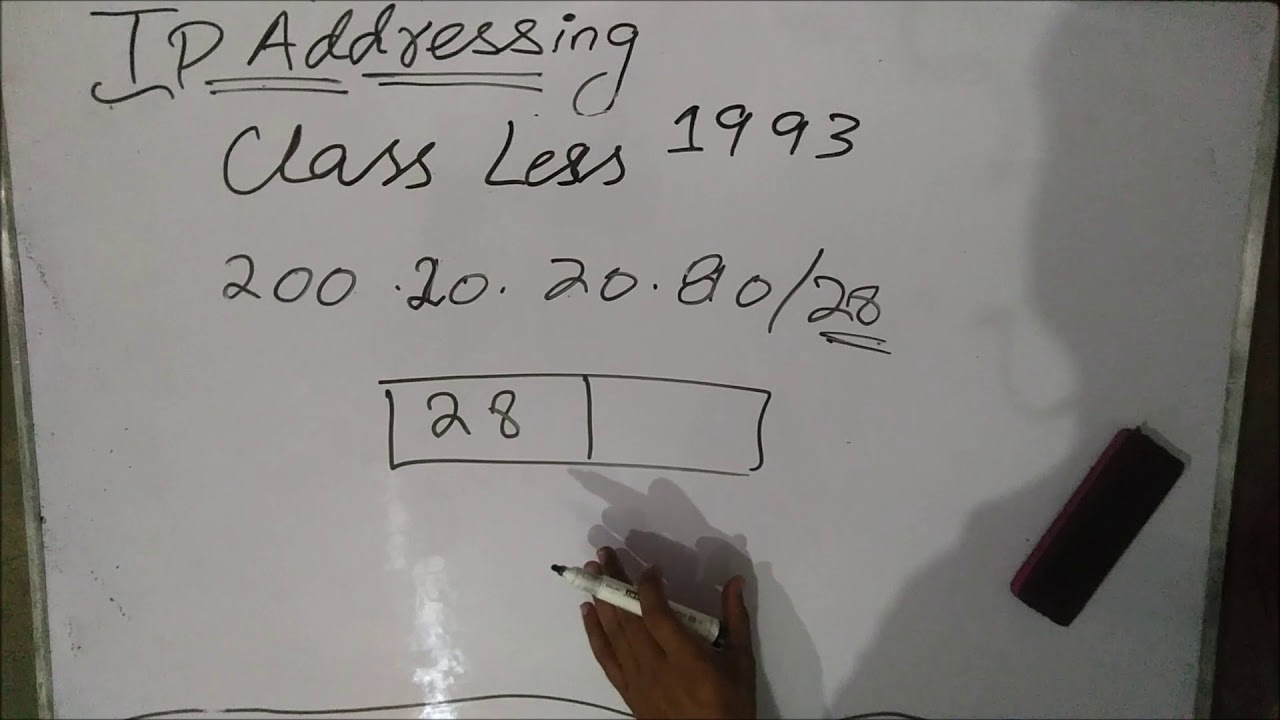 IP Addressing
Class Less 1993
200.20.20.80/28
28